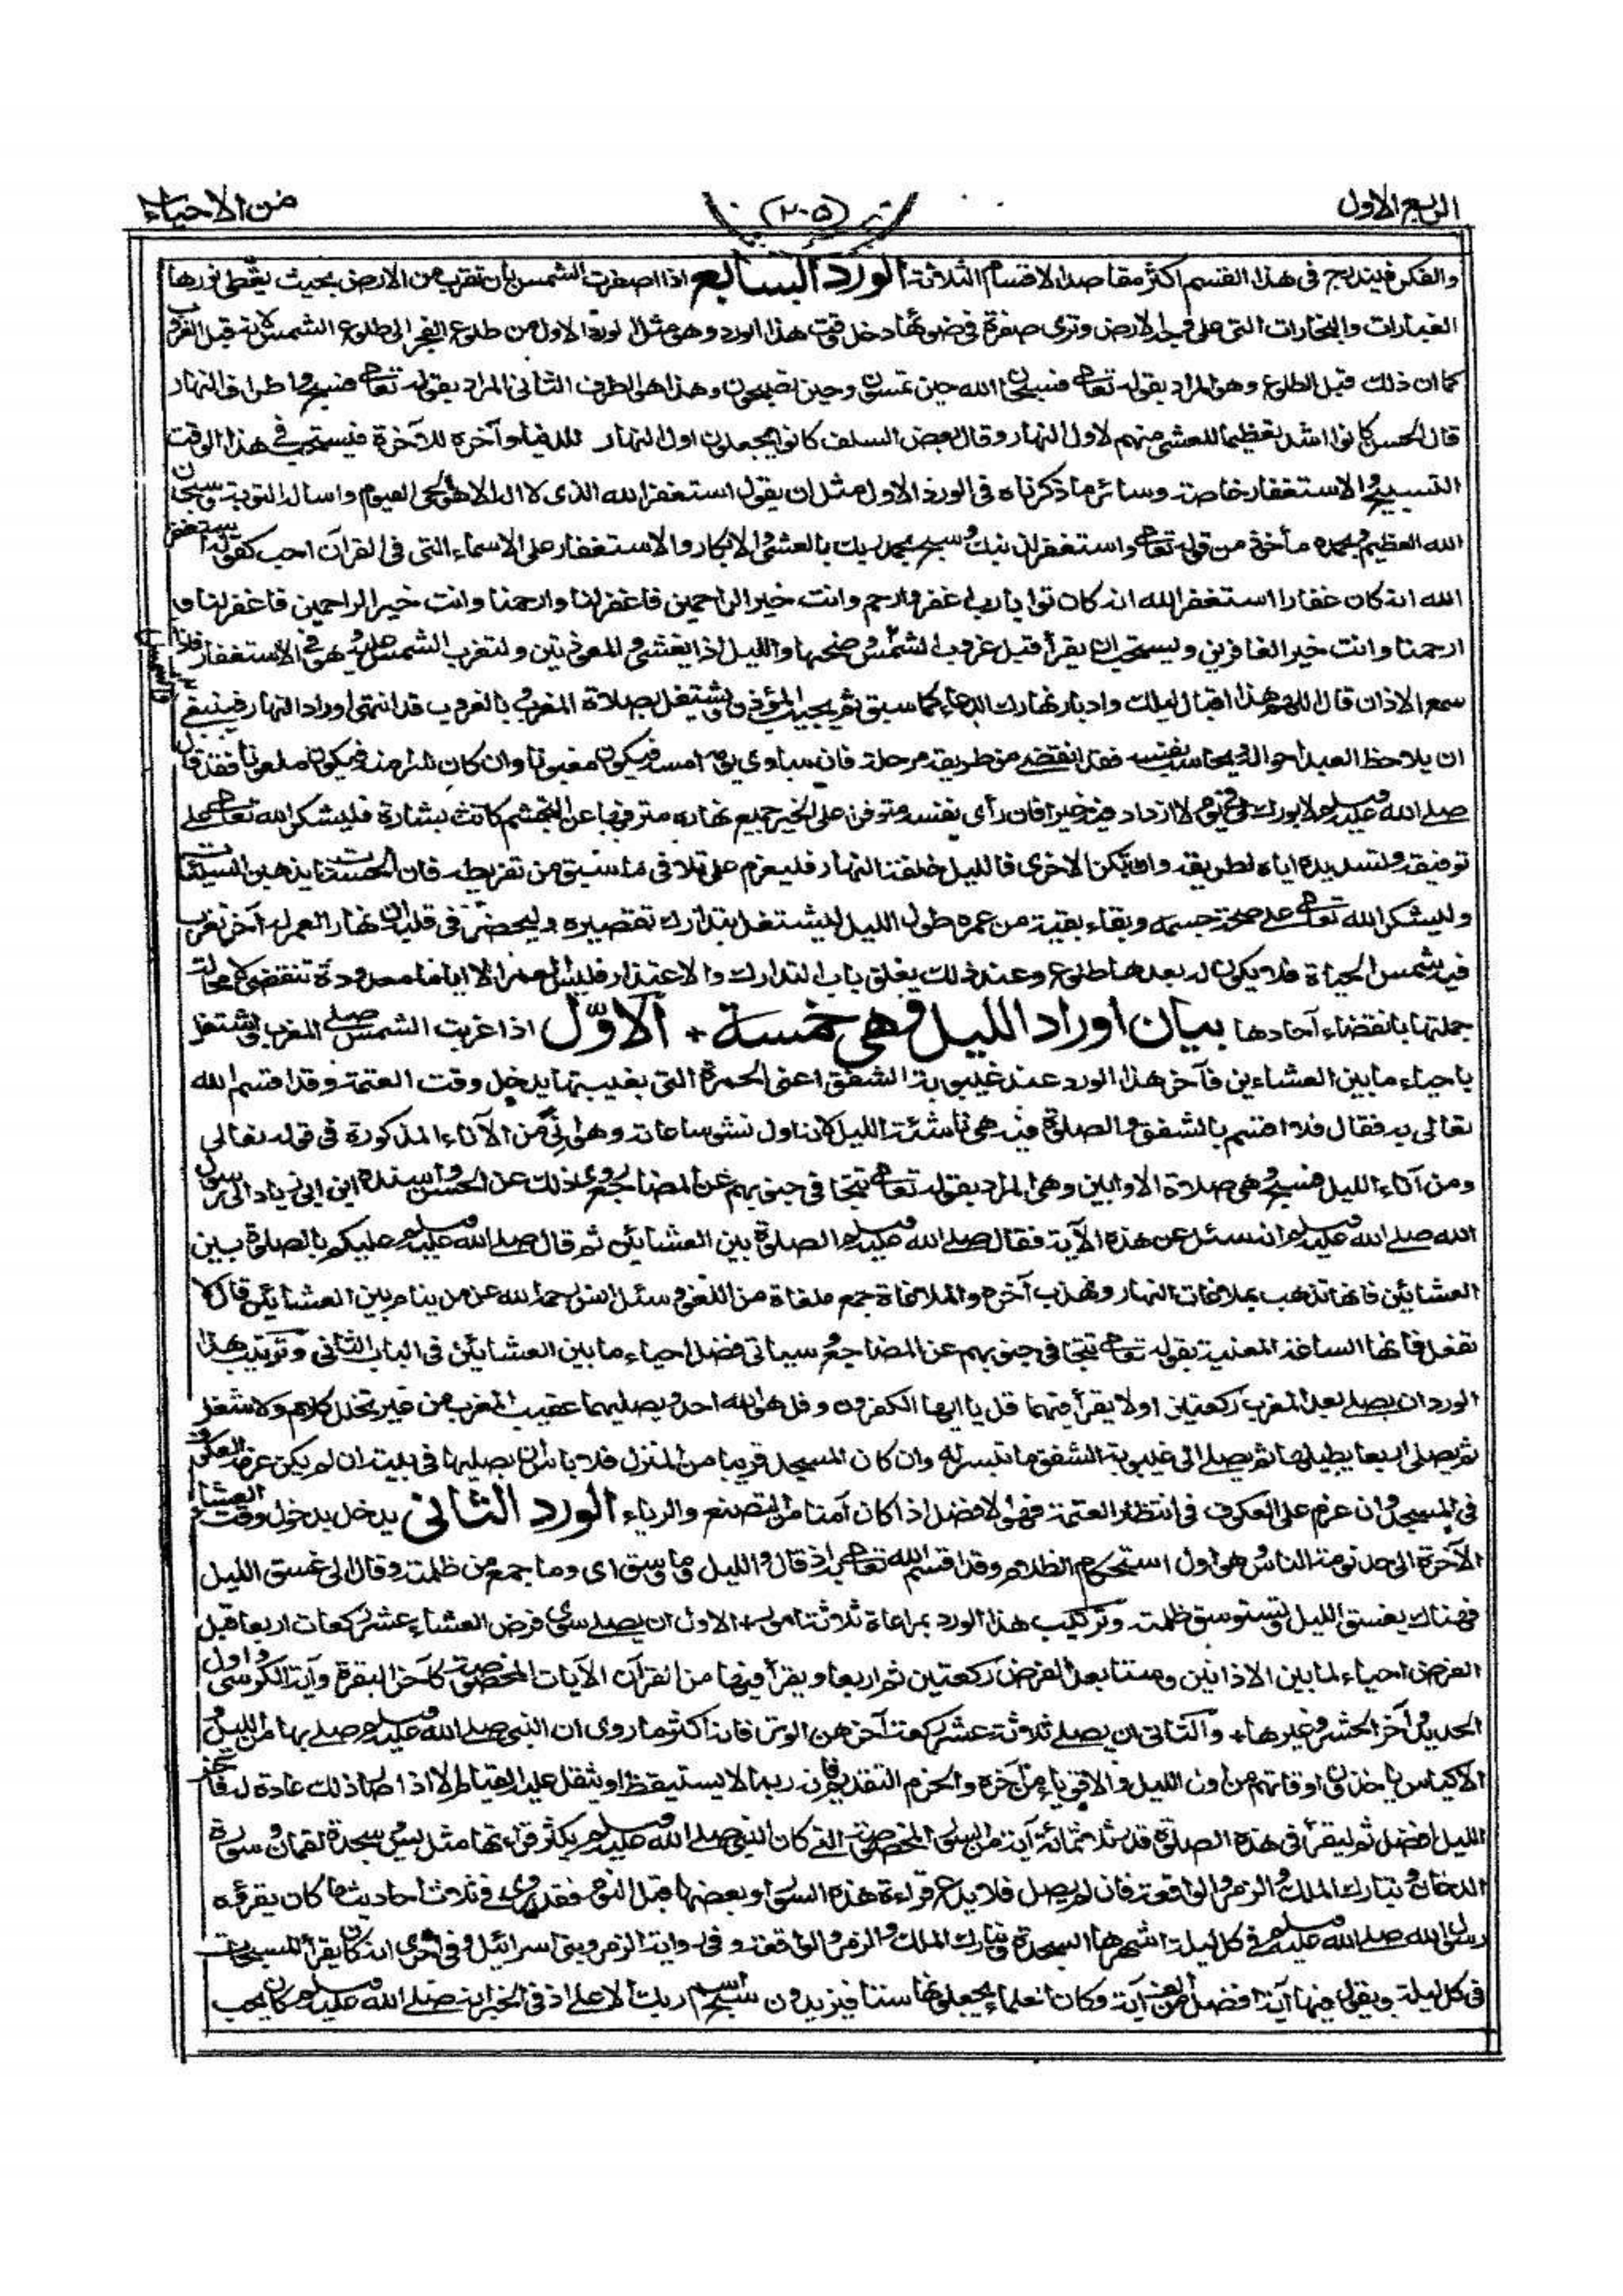 الربع الاول
(٢٠٥)
من الاحياء
والفكر فيندرج فى هذا القسم اكثر مقاصد الاقسام الثلاثة الورد السابع اذا اصفرت الشمس بان تقرب من الارض بحيث يغطى نورها
الغبارات والبخارات التى على وجه الارض وترى صفرة فى ضوئها دخل وقت هذا الورد وهو مثل الورد الاول من طلوع الفجر الى طلوع الشمس لانه قبل الغروب
كما ان ذلك قبل الطلوع وهو المراد بقوله تعالى فسبحان الله حين تمسون وحين تصبحون وهذا هو الطرف الثانى المراد بقوله تعالى فسبح واطراف النهار
قال الحسن كانوا اشد تعظيما للعشى منهم لاول النهار وقال بعض السلف كانوا يجعلون اول النهار للدنيا وآخره للآخرة فيستحب فى هذا الوقت
التسبيح والاستغفار خاصة وسائر ما ذكرناه فى الورد الاول مثل ان يقول استغفر الله الذى لا اله الا هو الحى القيوم واساله التوبة وسبحان
الله العظيم وبحمده مأخوذ من قوله تعالى واستغفر لذنبك وسبح بحمد ربك بالعشى والابكار والاستغفار على الاسماء التى فى القرآن احب كقوله استغفر
الله انه كان غفارا استغفر الله انه كان توابا رب اغفر وارحم وانت خير الراحمين فاغفر لنا وارحمنا وانت خير الراحمين فاغفر لنا و
ارحمنا وانت خير الغافرين ويستحب ان يقرأ قبل غروب الشمس والشمس وضحها والليل اذا يغشى والمعوذتين ولتغرب الشمس عليه وهو فى الاستغفار فاذا
سمع الاذان قال اللهم هذا اقبال ليلك وادبار نهارك الدعاء كما سبق ثم يجيب المؤذن ويشتغل بصلاة المغرب وبالغروب قد انتهى اوراد النهار فينبغى
ان يلاحظ العبد احواله ويحاسب نفسه فقد انقضى من طريقه مرحلة فان ساوى يومه امسه فيكون مغبونا وان كان شرا منه فيكون ملعونا فقد قال
صلى الله عليه وسلم لا بورك لى فى يوم لا ازداد فيه خيرا فان رأى نفسه متوفرا على الخير جميع نهاره مترفها عن التجشم كانت بشارة فليشكر الله تعالى على
توفيقه وتسديده اياه لطريقه وان تكن الاخرى فالليل خلفة النهار فليعزم على تلافى ما سبق من تفريطه فان الحسنات يذهبن السيئات
وليشكر الله تعالى على صحة جسمه وبقاء بقية من عمره طول الليل ليشتغل بتدارك تقصيره وليحضر فى قلبه ان نهار العمر له آخر تغرب
فيه شمس الحياة فلا يكون له بعدها طلوع وعند ذلك يغلق باب التدارك والاعتذار فليس العمر الا اياما معدودة تنقضى لا محالة
جملتها بانقضاء آحادها بيان اوراد الليل وهى خمسة + الاوّل اذا غربت الشمس صلى المغرب واشتغل
باحياء ما بين العشاءين فآخر هذا الورد عند غيبوبة الشفق اعنى الحمرة التى بغيبتها يدخل وقت العتمة وقد اقسم الله
تعالى به فقال فلا اقسم بالشفق والصلوة فيه هى ناشئة الليل لانه اول نشو ساعاته وهو آن من الآناء المذكورة فى قوله تعالى
ومن آناء الليل فسبح وهى صلاة الاوابين وهى المراد بقوله تعالى تتجافى جنوبهم عن المضاجع روى ذلك عن الحسن واسنده ابن ابى زياد الى رسول
الله صلى الله عليه وسلم انه سئل عن هذه الآية فقال صلى الله عليه وسلم الصلوة بين العشائين ثم قال صلى الله عليه وسلم عليكم بالصلوة بين
العشائين فانها تذهب بملاغات النهار وتهذب آخره والملاغاة جمع ملغاة من اللغو وسئل انس رحمه الله عن من ينام بين العشائين قال لا
تفعل فانها الساعة المعنية بقوله تعالى تتجافى جنوبهم عن المضاجع وسياتى فضل احياء ما بين العشائين فى الباب الثانى وترتيب هذا
الورد ان يصلى بعد المغرب ركعتين اولا يقرأ فيهما قل يا ايها الكفرون وقل هو الله احد ويصليهما عقيب المغرب من غير تخلل كلام ولا شغل
ثم يصلى اربعا يطيلها ثم يصلى الى غيبوبة الشفق ما تيسر له وان كان المسجد قريبا من المنزل فلا باس ان يصليها فى بيته ان لم يكن عزمه العكوف
فى المسجد وان عزم على العكوف فى انتظار العتمة فهو الافضل اذا كان آمنا من التصنع والرياء الورد الثانى يدخل بدخول وقت العشاء
الآخرة الى حد نومة الناس وهو اول استحكام الظلام وقد اقسم الله تعالى به اذ قال والليل وما وسق اى وما جمع من ظلمته وقال الى غسق الليل
فهناك يغسق الليل وتستوسق ظلمته وترتيب هذا الورد بمراعاة ثلاثة امور + الاول ان يصلى سوى فرض العشاء عشر ركعات اربعا قبل
الفرض احياء لما بين الاذانين وستا بعد الفرض ركعتين ثم اربعا ويقرأ فيها من القرآن الآيات المخصوصة كآخر البقرة وآية الكرسى واول
الحديد وآخر الحشر وغيرها + والثانى ان يصلى ثلاثة عشر ركعة آخرهن الوتر فانه اكثر ما روى ان النبى صلى الله عليه وسلم صلى بها من الليل و
الاكياس ياخذون اوقاتهم من اول الليل والاقوياء من آخره والحزم التقديم فانه ربما لا يستيقظ او يثقل عليه القيام الا اذا صار ذلك عادة له فآخر
الليل افضل ثم ليقرأ فى هذه الصلوة قدر ثلاثمائة آية من السور المخصوصة التى كان النبى صلى الله عليه وسلم يكثر قراءتها مثل يس وسجدة لقمان وسورة
الدخان وتبارك الملك والزمر والواقعة فان لم يصل فلا يدع قراءة هذه السور او بعضها قبل النوم فقد روى فى ثلاث احاديث ما كان يقرؤه
رسول الله صلى الله عليه وسلم فى كل ليلة اشهرها السجدة وتبارك الملك والزمر والواقعة وفى رواية الزمر وبنى اسرائيل وفى اخرى انه كان يقرأ المسبحات
فى كل ليلة ويقول فيها آية افضل من الف آية وكان العلماء يجعلونها ستا فيزيدون سبح اسم ربك الاعلى اذ فى الخبر انه صلى الله عليه وسلم كان يحب